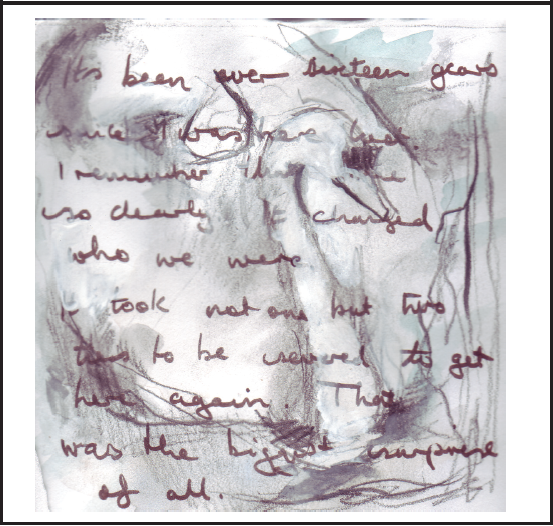 Its been over sixteen years
since I was here last.
I remember that time
so clearly. It changed
who we were
it took not one but two
to be to get
here again. That
was the biggest surprise
of all.